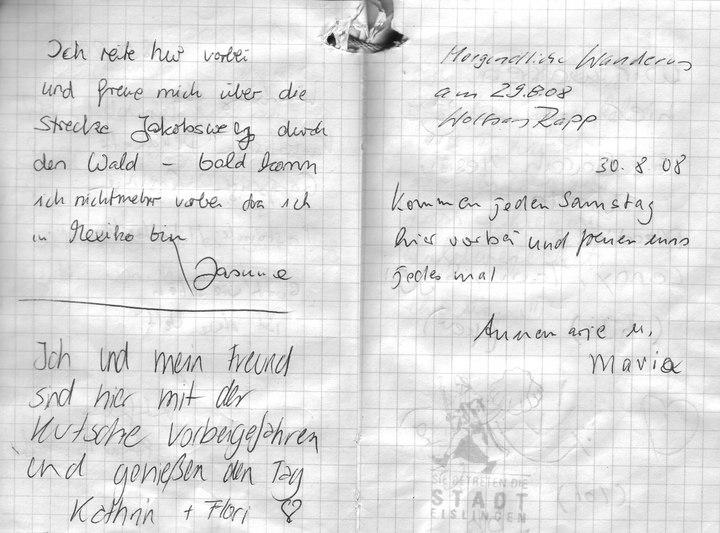 Ich reite hier vorbei
und freue mich über die
Strecke Jakobsweg durch
den Wald – bald kann
ich nichtmehr vorbei da ich
in Mexiko bin
Ich und mein Freund
sind hier mit der
Kutsche vorbeigefahren
und genießen den Tag
Kathrin + Flori ♡
Morgendliche Wanderung
am 29.8.08
Wolfgang Rapp
30.8.08
Kommen jeden Samstag
hier vorbei und freuen uns
jedes mal
Annemarie u.
Maria
SIE BETRETEN DIE
STADT
EISLINGEN